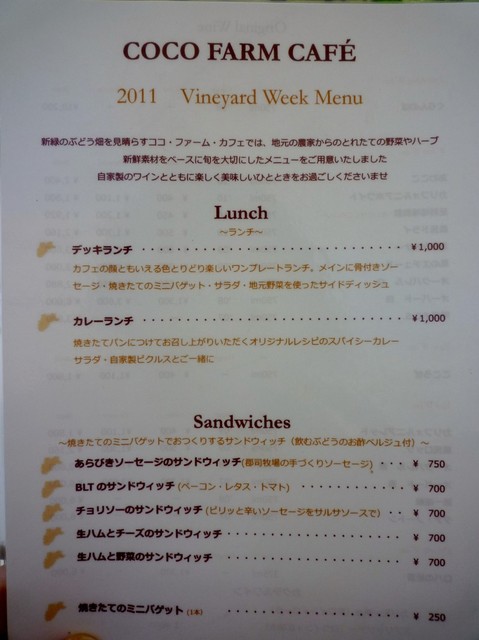 COCO FARM CAFÉ
2011 Vineyard Week Menu
新緑のぶどう畑を見晴らすココ・ファーム・カフェでは、地元の農家からのとれたての野菜やハーブ
新鮮素材をベースに旬を大切にしたメニューをご用意いたしました
自家製のワインとともに楽しく美味しいひとときをお過ごしくださいませ
Lunch
～ランチ～
デッキランチ ・・・・・・・・・・・・・・・・・・・・・・・・・・・・ ¥1,000
カフェの顔ともいえる色とりどり楽しいワンプレートランチ。メインに骨付きソー
セージ・焼きたてのミニバゲット・サラダ・地元野菜を使ったサイドディッシュ
カレーランチ ・・・・・・・・・・・・・・・・・・・・・・・・・・・・ ¥1,000
焼きたてパンにつけてお召し上がりいただくオリジナルレシピのスパイシーカレー
サラダ・自家製ピクルスとご一緒に
Sandwiches
～焼きたてのミニバゲットでおつくりするサンドウィッチ（飲むぶどうのお酢ベルジュ付）～
あらびきソーセージのサンドウィッチ(郡司牧場の手づくりソーセージ) ・・・ ¥ 750
BLTのサンドウィッチ (ベーコン・レタス・トマト) ・・・・・・・・・・・・ ¥ 700
チョリソーのサンドウィッチ (ピリッと辛いソーセージをサルサソースで) ・・ ¥ 700
生ハムとチーズのサンドウィッチ ・・・・・・・・・・・・・・・・・・ ¥ 700
生ハムと野菜のサンドウィッチ ・・・・・・・・・・・・・・・・・・・ ¥ 700
焼きたてのミニバゲット (1本) ・・・・・・・・・・・・・・・・・・・・ ¥ 250